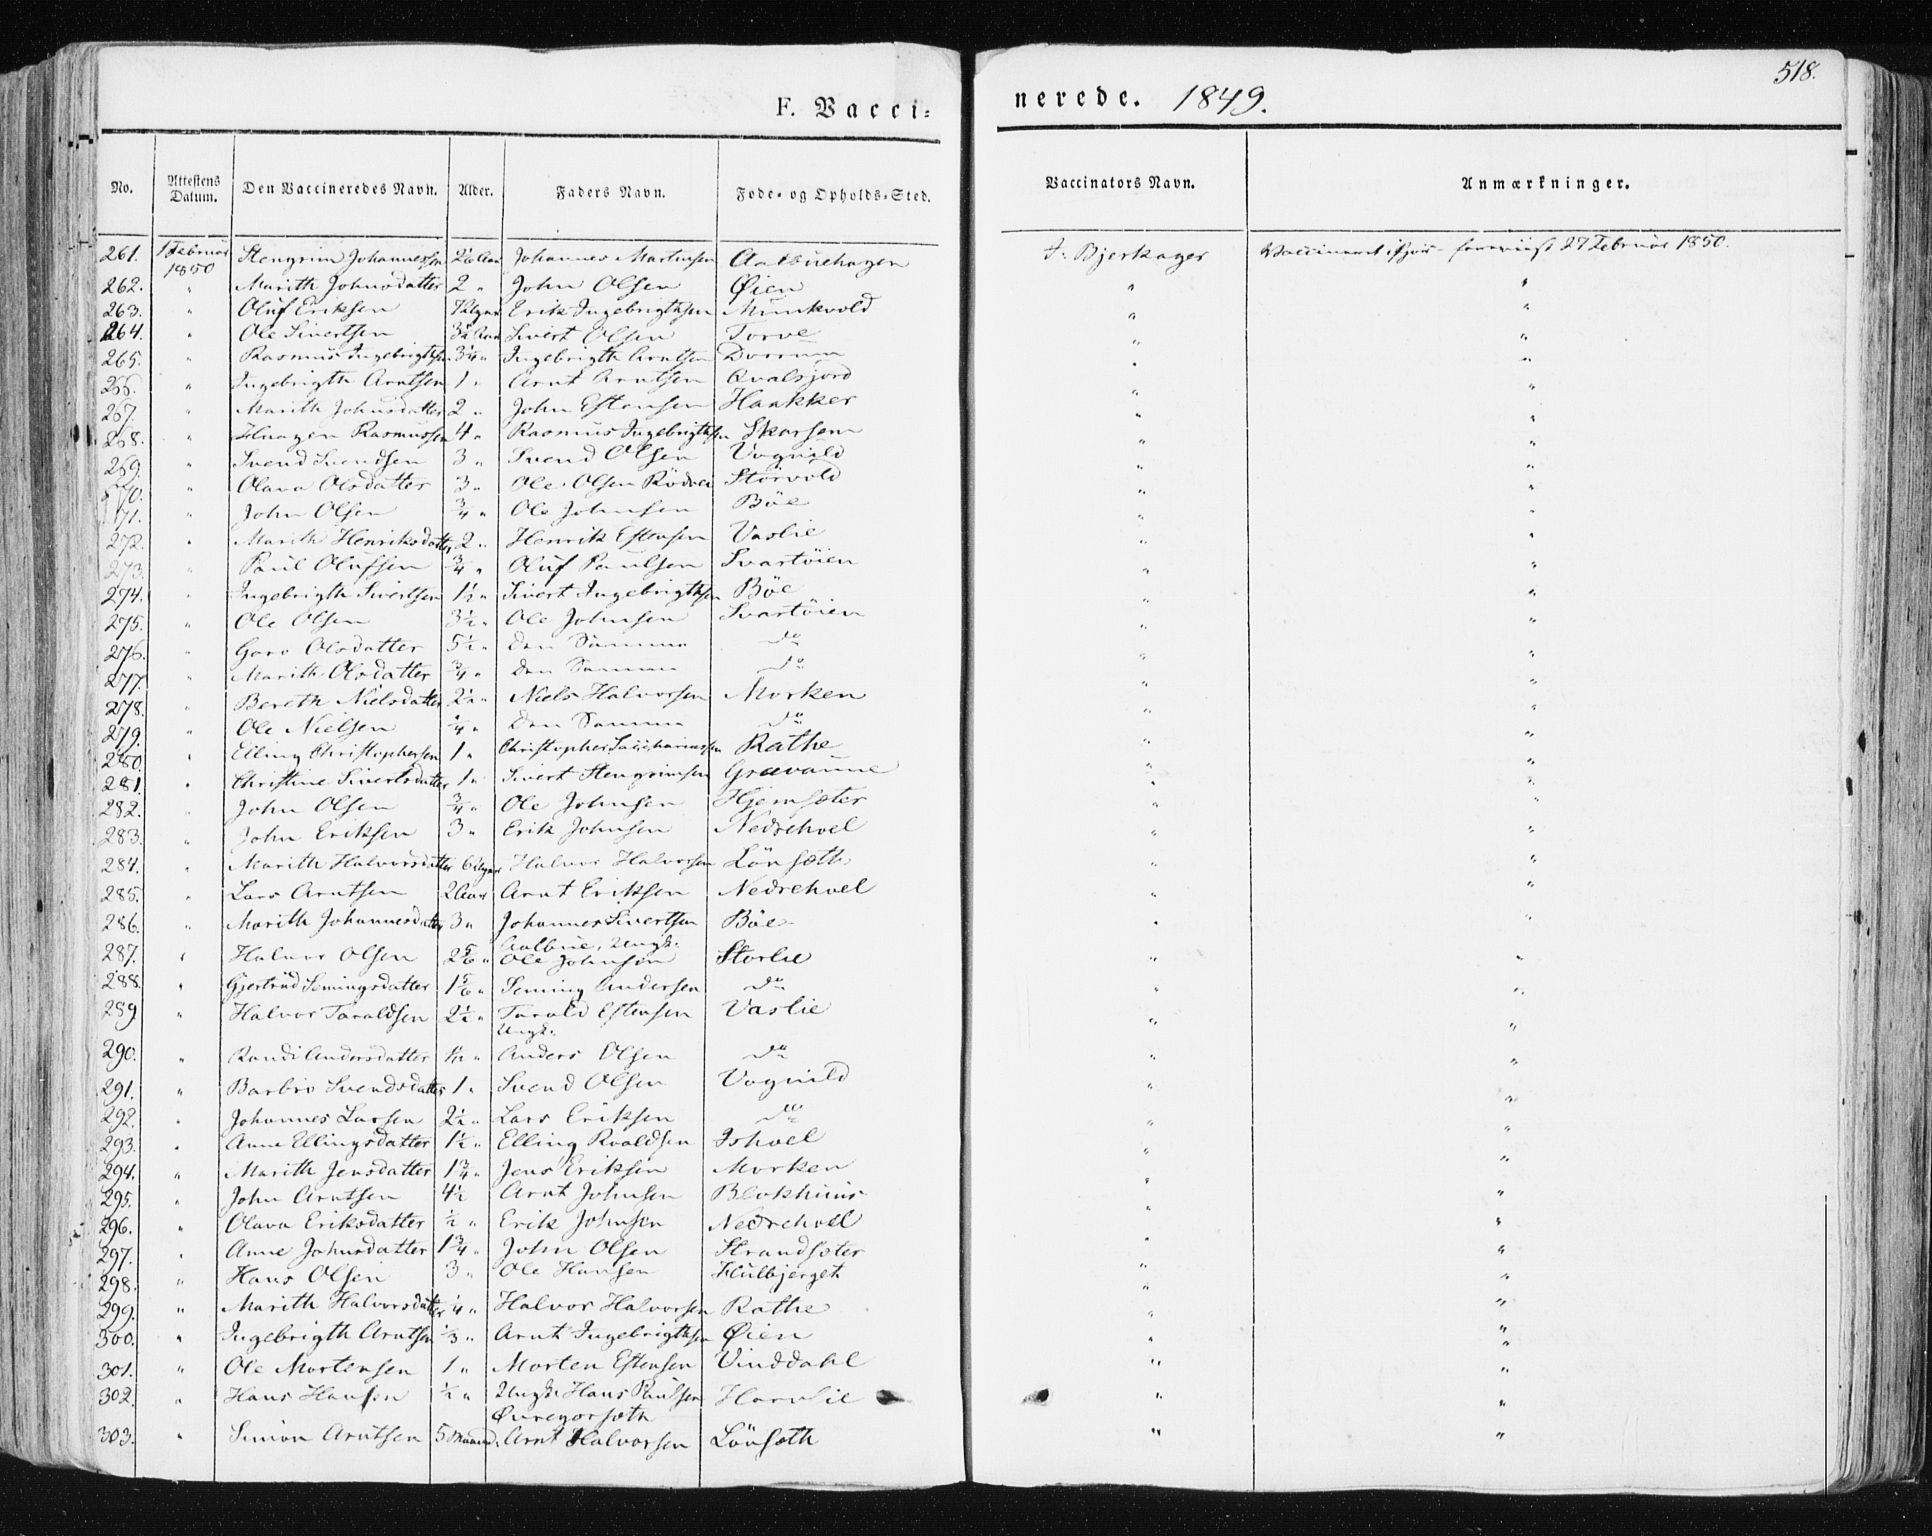 518.
F. Vacci=
nerede. 1849.
No. Attestens Datum. Den Vaccineredes Navn. Alder. Faders Navn. Føde- og Opholds-Sted. Vaccinators Navn. Anmærkninger.
261. 1 Februar 1850 Stengrim Johannessen Johannes Martinsen J. Bjerkager 27 Februar 1850.
262. " Marith Johnsdatter 2 " John Olsen Øien " "
263. " Oluf Eriksen Erik Ingebrigthsen Munkvold " "
264. " Ole Sivertsen Sivert Olsen Torve " "
265. " Rasmus Ingebrigthsen 3¼ " Ingebrigth Arntsen Dorrum " "
266. " Ingebrigth Arntsen 1 " Arnt Arntsen " "
267. " Marith Johnsdatter 2 " John Estensen Haakker " "
268. " Haagen Rasmussen 4 " Rasmus Ingebrigthsen Skarsem " "
269. " Svend Svendsen 3 " Svend Olsen Vognild " "
270. " Olava Olsdatter 3 " Ole Olsen Storvold " "
271. " John Olsen ¾ " Ole Johnsen Böe " "
272. " Marith Henriksdatter 2 " Henrik Estensen Vaslie " "
273. " Paul Olufsen ¾ " Oluf Paulsen Svartöien " "
274. " Ingebrigth Sivertsen 1½ " Sivert Ingebrigthsen Böe " "
275. " Ole Olsen 3½ " Ole Johnsen Svartöien " "
276. " Goro Olsdatter 5½ " Den Samme do " "
277. " Marith Olsdatter ¾ " Den Samme do " "
278. " Bereth Nielsdatter 2½ " Niels Halvorsen Morken " "
279. " Ole Nielsen ¼ " Den Samme do " "
280. " Elling Christophersen 1 " Christopher Sachariassen Rathe " "
281. " Christine Sivertsdatter 1 " Sivert Stengrimsen Grævaune " "
282. " John Olsen ¾ " Ole Johnsen Hjemsæter " "
283. " John Eriksen 3 " Erik Johnsen Nedrehoel " "
284. " Marith Halvorsdatter Halvor Halvorsen Lönsæth " "
285. " Lars Arntsen 2 Aar Arnt Eriksen Nedrehoel " "
286. " Marith Johannesdatter 3 " Johannes Sivertsen Böe " "
Aalbue, Ungk.
287. " Halvor Olsen 2⅚ " Ole Johnsen Storlie " "
288. " Gjertrud Semingsdatter 1⅚ " Seming Andersen do " "
289 " Halvor Taraldsen 2½ " Tarald Estensen Vaslie " "
Ungk.
290. " Randi Andersdatter Anders Olsen do " "
291. " Barbro Svendsdatter 1 " Svend Olsen Vognild " "
292. " Johannes Larsen 2½ " Lars Eriksen do " "
293. " Anne Ellingsdatter 1½ " Elling Roaldsen Ishoel " "
294. " Marith Jensdatter 1¾ " Jens Eriksen Morken " "
295. " John Arntsen 4½ Arnt Johnsen Blokhuus " "
296. " Olava Eriksdatter ½ " Erik Johnsen Nedrehoel " "
297. " Anne Johnsdatter 1¾ " John Olsen Strandsæter " "
298. " Hans Olsen 3 " Ole Hansen Hulbjerget " "
299. " Marith Halvorsdatter ¼ " Halvor Halvorsen Rathe " "
300. " Ingebrigth Arntsen ⅓ " Arnt Ingebrigthsen Øien " "
301. " Ole Mortensen 1 " Morten Estensen Vinddahl " "
302. " Hans Hansen ½ " Ungk. Hans Paulsen " "
Øvregorsæth
303. " Simon Arntsen 5 Maaned. Arnt Halvorsen Lönsæth " "